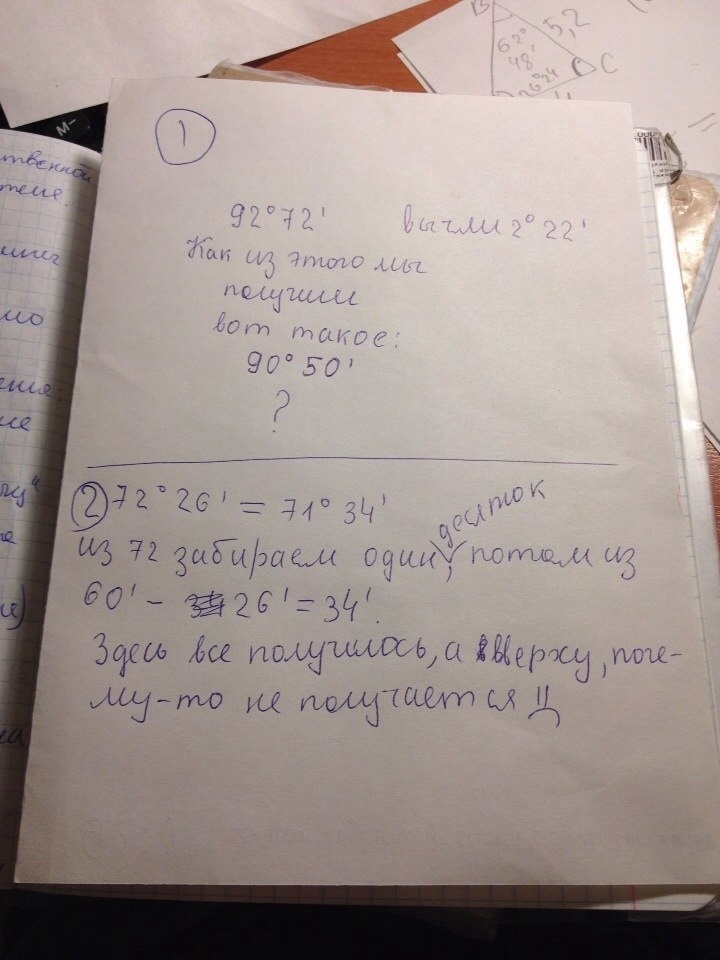 В
5,2
62°
48'
С
М-
1
92°72' вычли 2°22'
Как из этого мы
получили
вот такое:
90°50'
?
2 72°26' = 71°34'
десяток
из 72 забираем один, потом из
60' - 26' = 34'.
Здесь все получилось, а вверху, поче-
му-то не получается